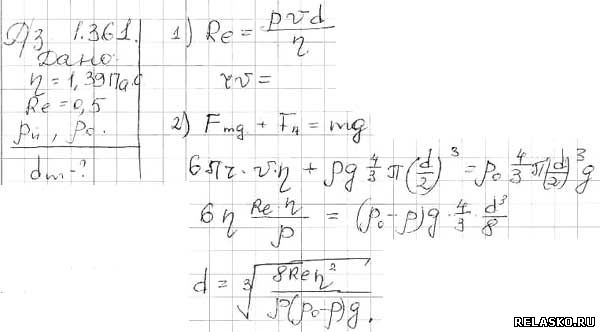 Д/з 1.361.
Дано:
η = 1,39 Па·с
Re = 0,5
ρц, ρ₀.
dm - ?
1) Re = ρvd/η
rv =
2) Fтр + FA = mg
6πr·v·η + ρg 4/3 π(d/2)³ = ρ₀ 4/3 π(d/2)³g
6η Reη/ρ = (ρ₀-ρ)g·4/3·d³/8
d = ∛(8Reη²/ρ(ρ₀-ρ)g).
RELASKO.RU